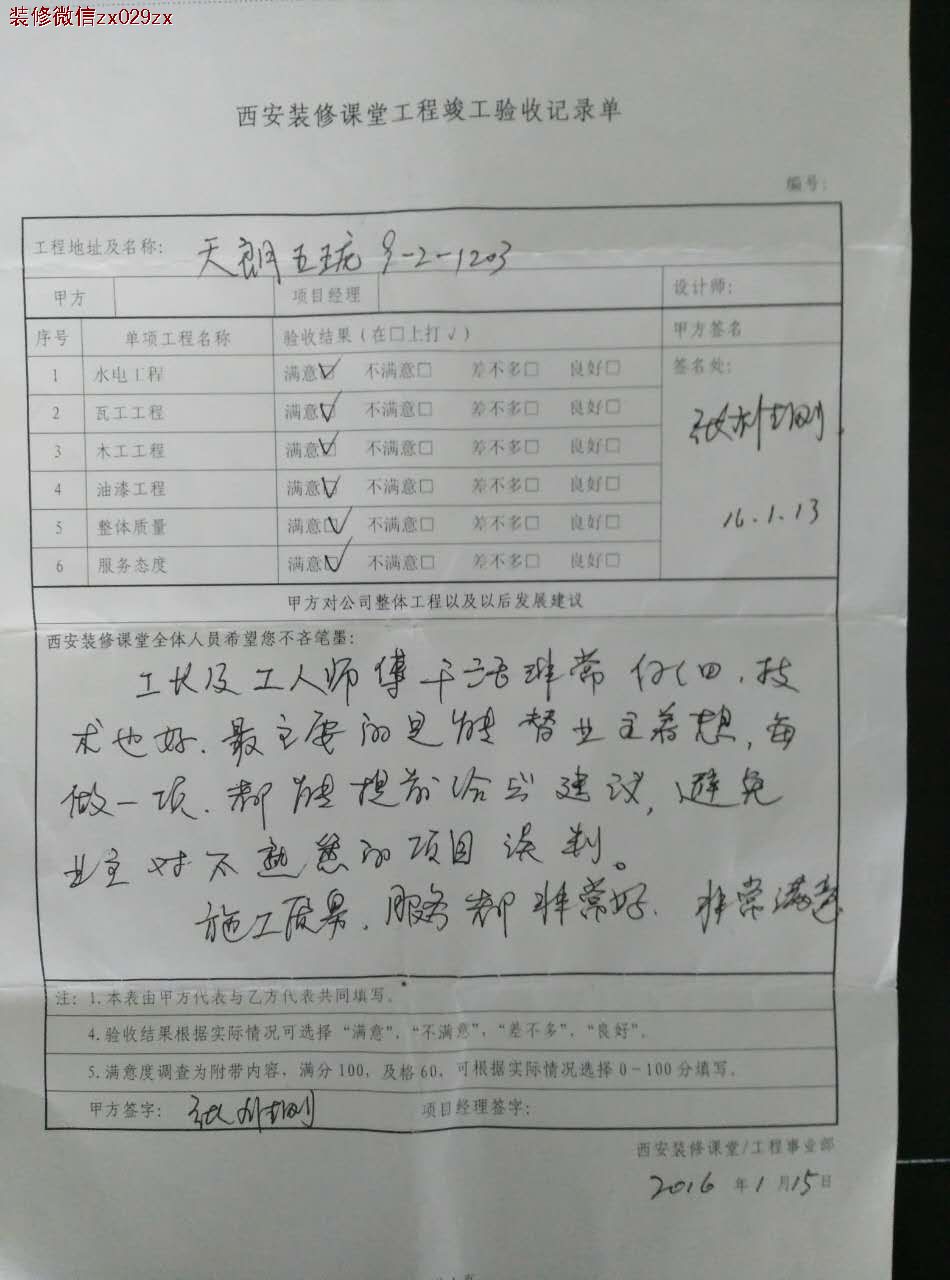 装修微信zx029zx
西安装修课堂工程竣工验收记录单
编号:
工程地址及名称: 天朗五珑 9-2-1203
甲方 项目经理 设计师:
序号 单项工程名称 验收结果(在□上打√) 甲方签名
1 水电工程 满意☑ 不满意□ 差不多□ 良好□ 签名处:
2 瓦工工程 满意☑ 不满意□ 差不多□ 良好□
3 木工工程 满意☑ 不满意□ 差不多□ 良好□
4 油漆工程 满意☑ 不满意□ 差不多□ 良好□
16.1.13
5 整体质量 满意☑ 不满意□ 差不多□ 良好□
6 服务态度 满意☑ 不满意□ 差不多□ 良好□
甲方对公司整体工程以及以后发展建议
西安装修课堂全体人员希望您不吝笔墨:
工长及工人师傅干活非常仔细,技
术也好.最主要的是能替业主着想,每
做一项.都能提前给出建议,避免
业主对不熟悉的项目误判。
施工质量.服务都非常好.非常满意
注: 1.本表由甲方代表与乙方代表共同填写。
4.验收结果根据实际情况可选择“满意”,“不满意”,“差不多”,“良好”。
5.满意度调查为附带内容,满分100,及格60,可根据实际情况选择0-100分填写。
甲方签字: 项目经理签字:
西安装修课堂/工程事业部
2016年1月15日